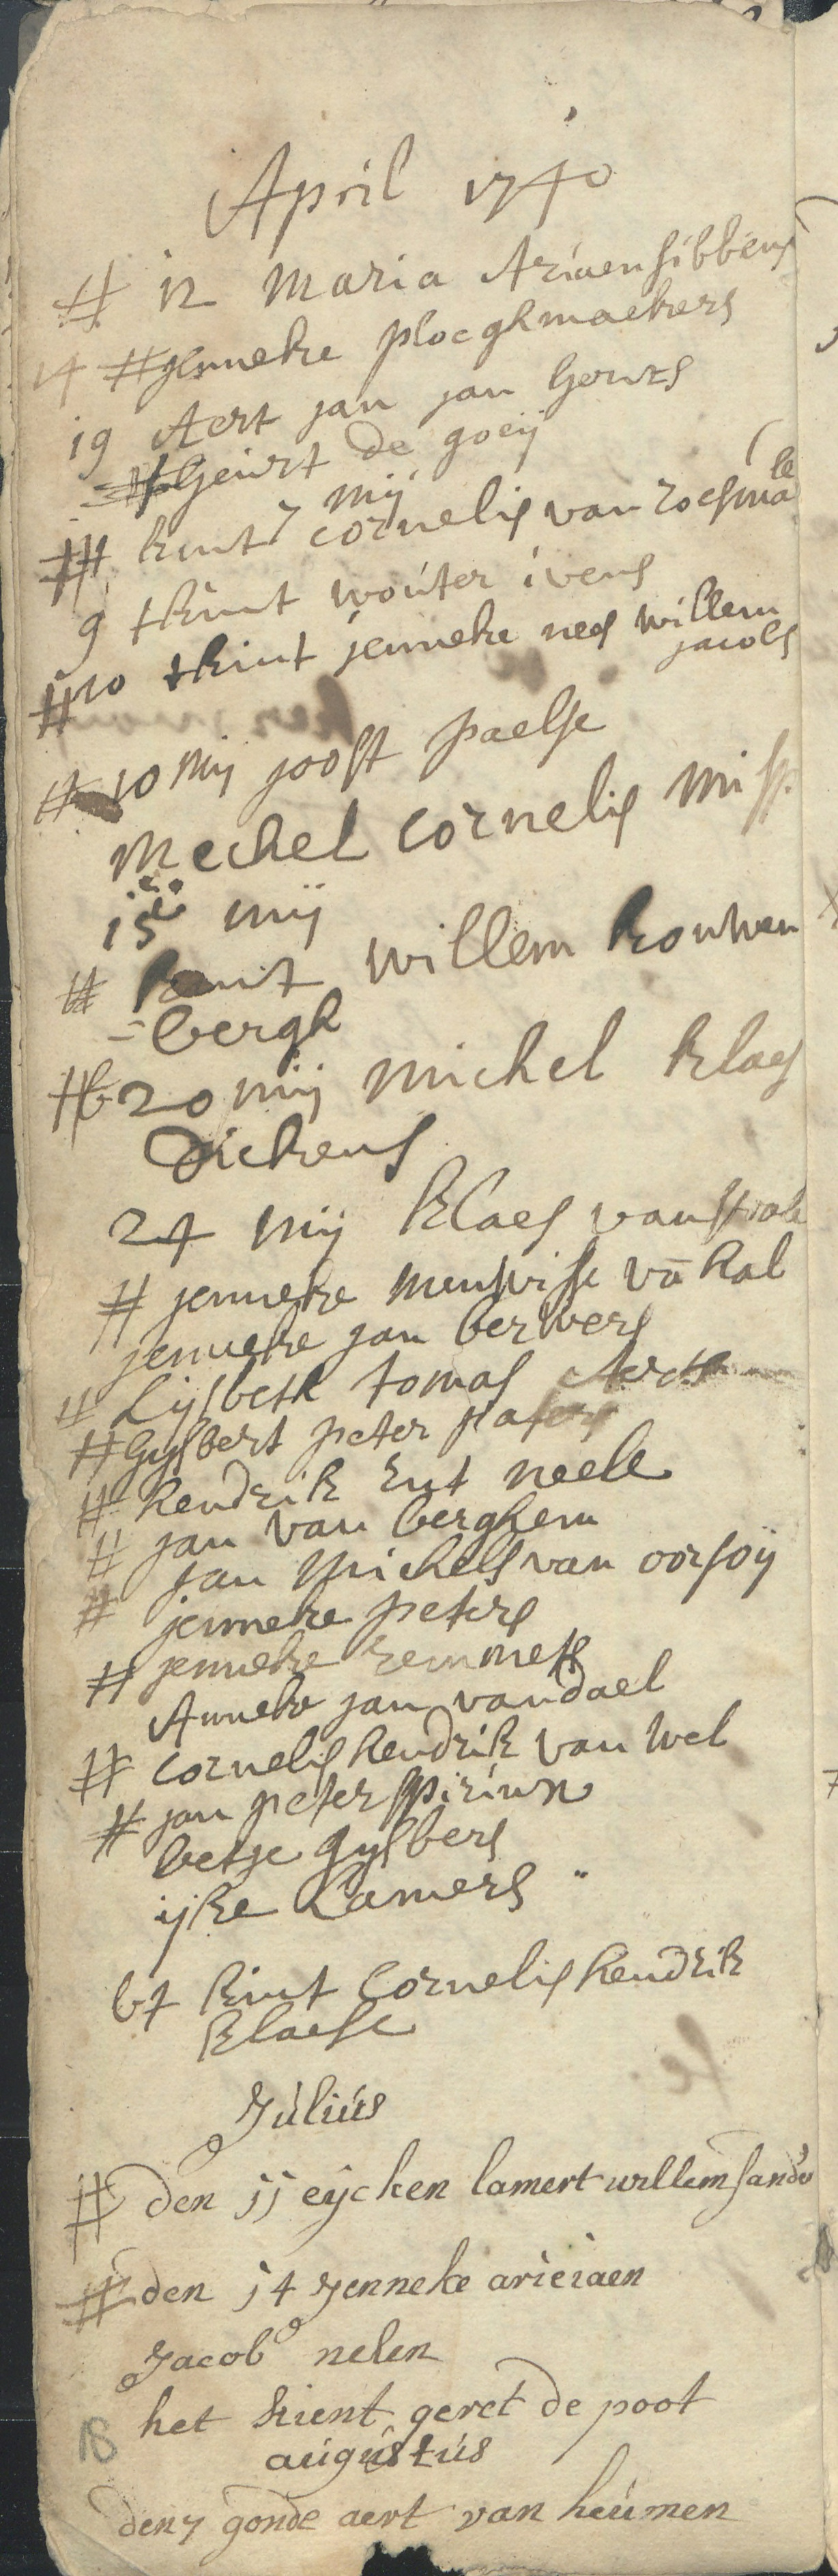 April 1740
# 12 Maria Ariaen sibbens
14 # Jenneke ploeghmaekers
19 Aert jan jan Gerits
# Geurt de goeij
7 mij
# kint cornelis van roesmale
9 tkint wouter ivens
# 10 tkint jenneke nees willem
jacobs
# 10 mij joost paelse
Mechel cornelis
15 mij
# kint willem kouwen
=bergh
# 20 mij Michel klaes
Dickens
24 mij klaes van
# jenneke vā hal
jenneke jan berwers
# Lijsbeth tomas Aerts
# Gijsbert peter
# hendrik Ent neele
# jan van berghem
jan Michels van oorsoij
# jenneke peters
# jenneke remmets
Anneke jan van dael
# cornelis hendrik van wel
# jan peter
betje gijsbers
ijke Lamers
kint Cornelis hendrik
klaese
Július
# den jj eijcken lamert willem sande
# den j4 Jenneke arieiaen
Jacob nelen
het kient geret de poot
18
aúgústús
den 7 gonde aert van heúmen